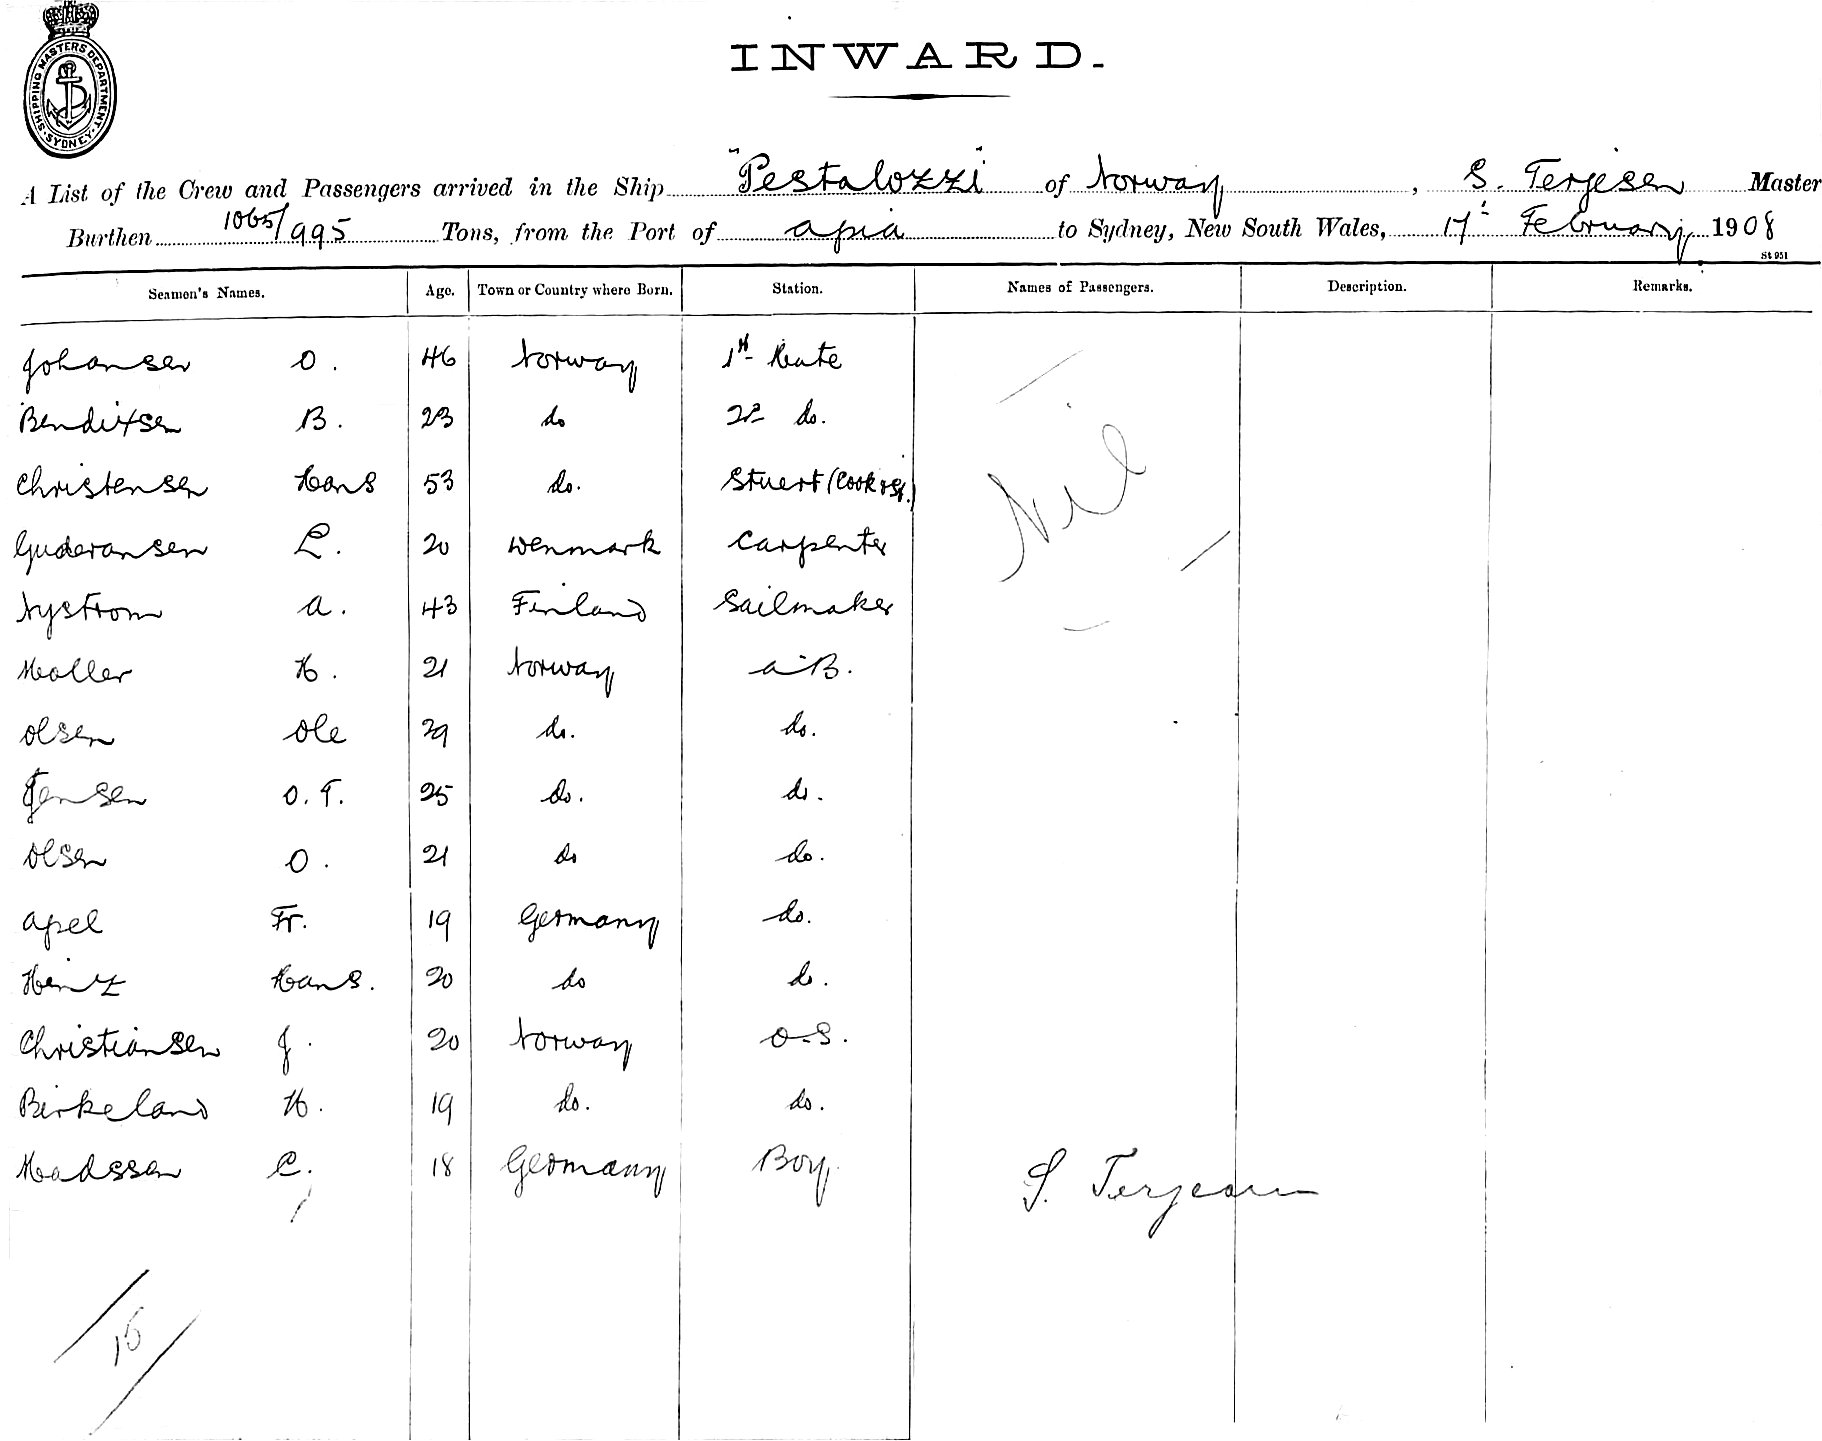 SHIPPING MASTERS DEPARTMENT SYDNEY
INWARD.
A List of the Crew and Passengers arrived in the Ship "Pestalozzi" of Norway, S. Terjesen Master
Burthen 1065/995 Tons, from the Port of Apia to Sydney, New South Wales, 17th February 1908
St 951
Seamen's Names. Age. Town or Country where Born. Station. Names of Passengers. Description. Remarks.
Johansen O. 46 Norway 1st Mate
Bendixsen B. 23 do 2nd do.
Christensen Hans 53 do. Stuert (Cook & St.)
Guderansen L. 20 Denmark Carpenter
Nystrom A. 43 Finland Sailmaker
Nil
Moller H. 21 Norway A.B.
Olsen Ole 29 do. do.
Jensen O. T. 25 do. do.
Olsen O. 21 do do.
Apel Fr. 19 Germany do.
Heintz Hans. 20 do do.
Christiansen J. 20 Norway O.S.
Birkeland H. 19 do. do.
Madssen C. 18 Germany Boy.
S. Terjesen
15